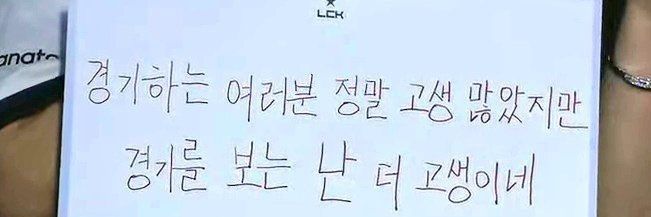 LCK
anato
경기하는 여러분 정말 고생 많았지만
경기를 보는 난 더 고생이네